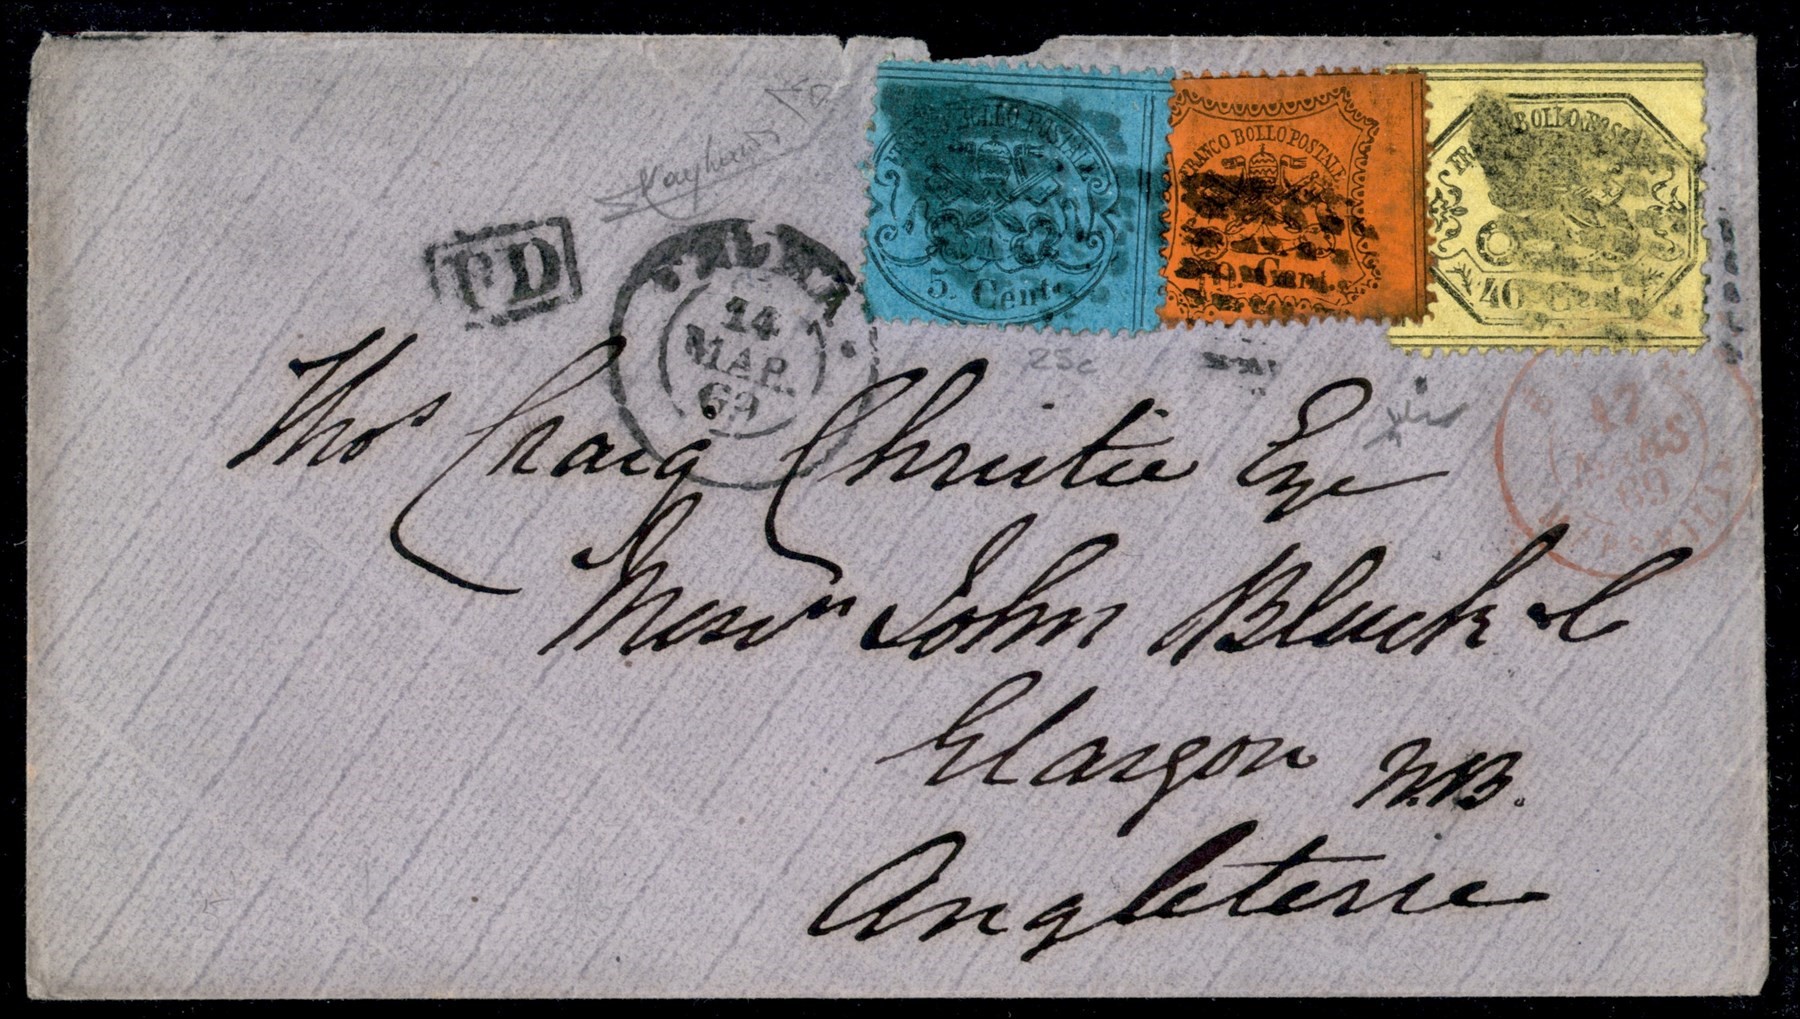 FRANCO BOLLO POSTALE
5. Cent.
FRANCO BOLLO POSTALE
10. Cent.
FRANCO BOLLO POSTALE
40 Cent.
PD
ROMA
14
MAR.
69
25c
17
MARS
69
MARSEILLE
Thos Craig Christie Esqe
Messrs John Black & C
Glasgow N.B.
Angleterre